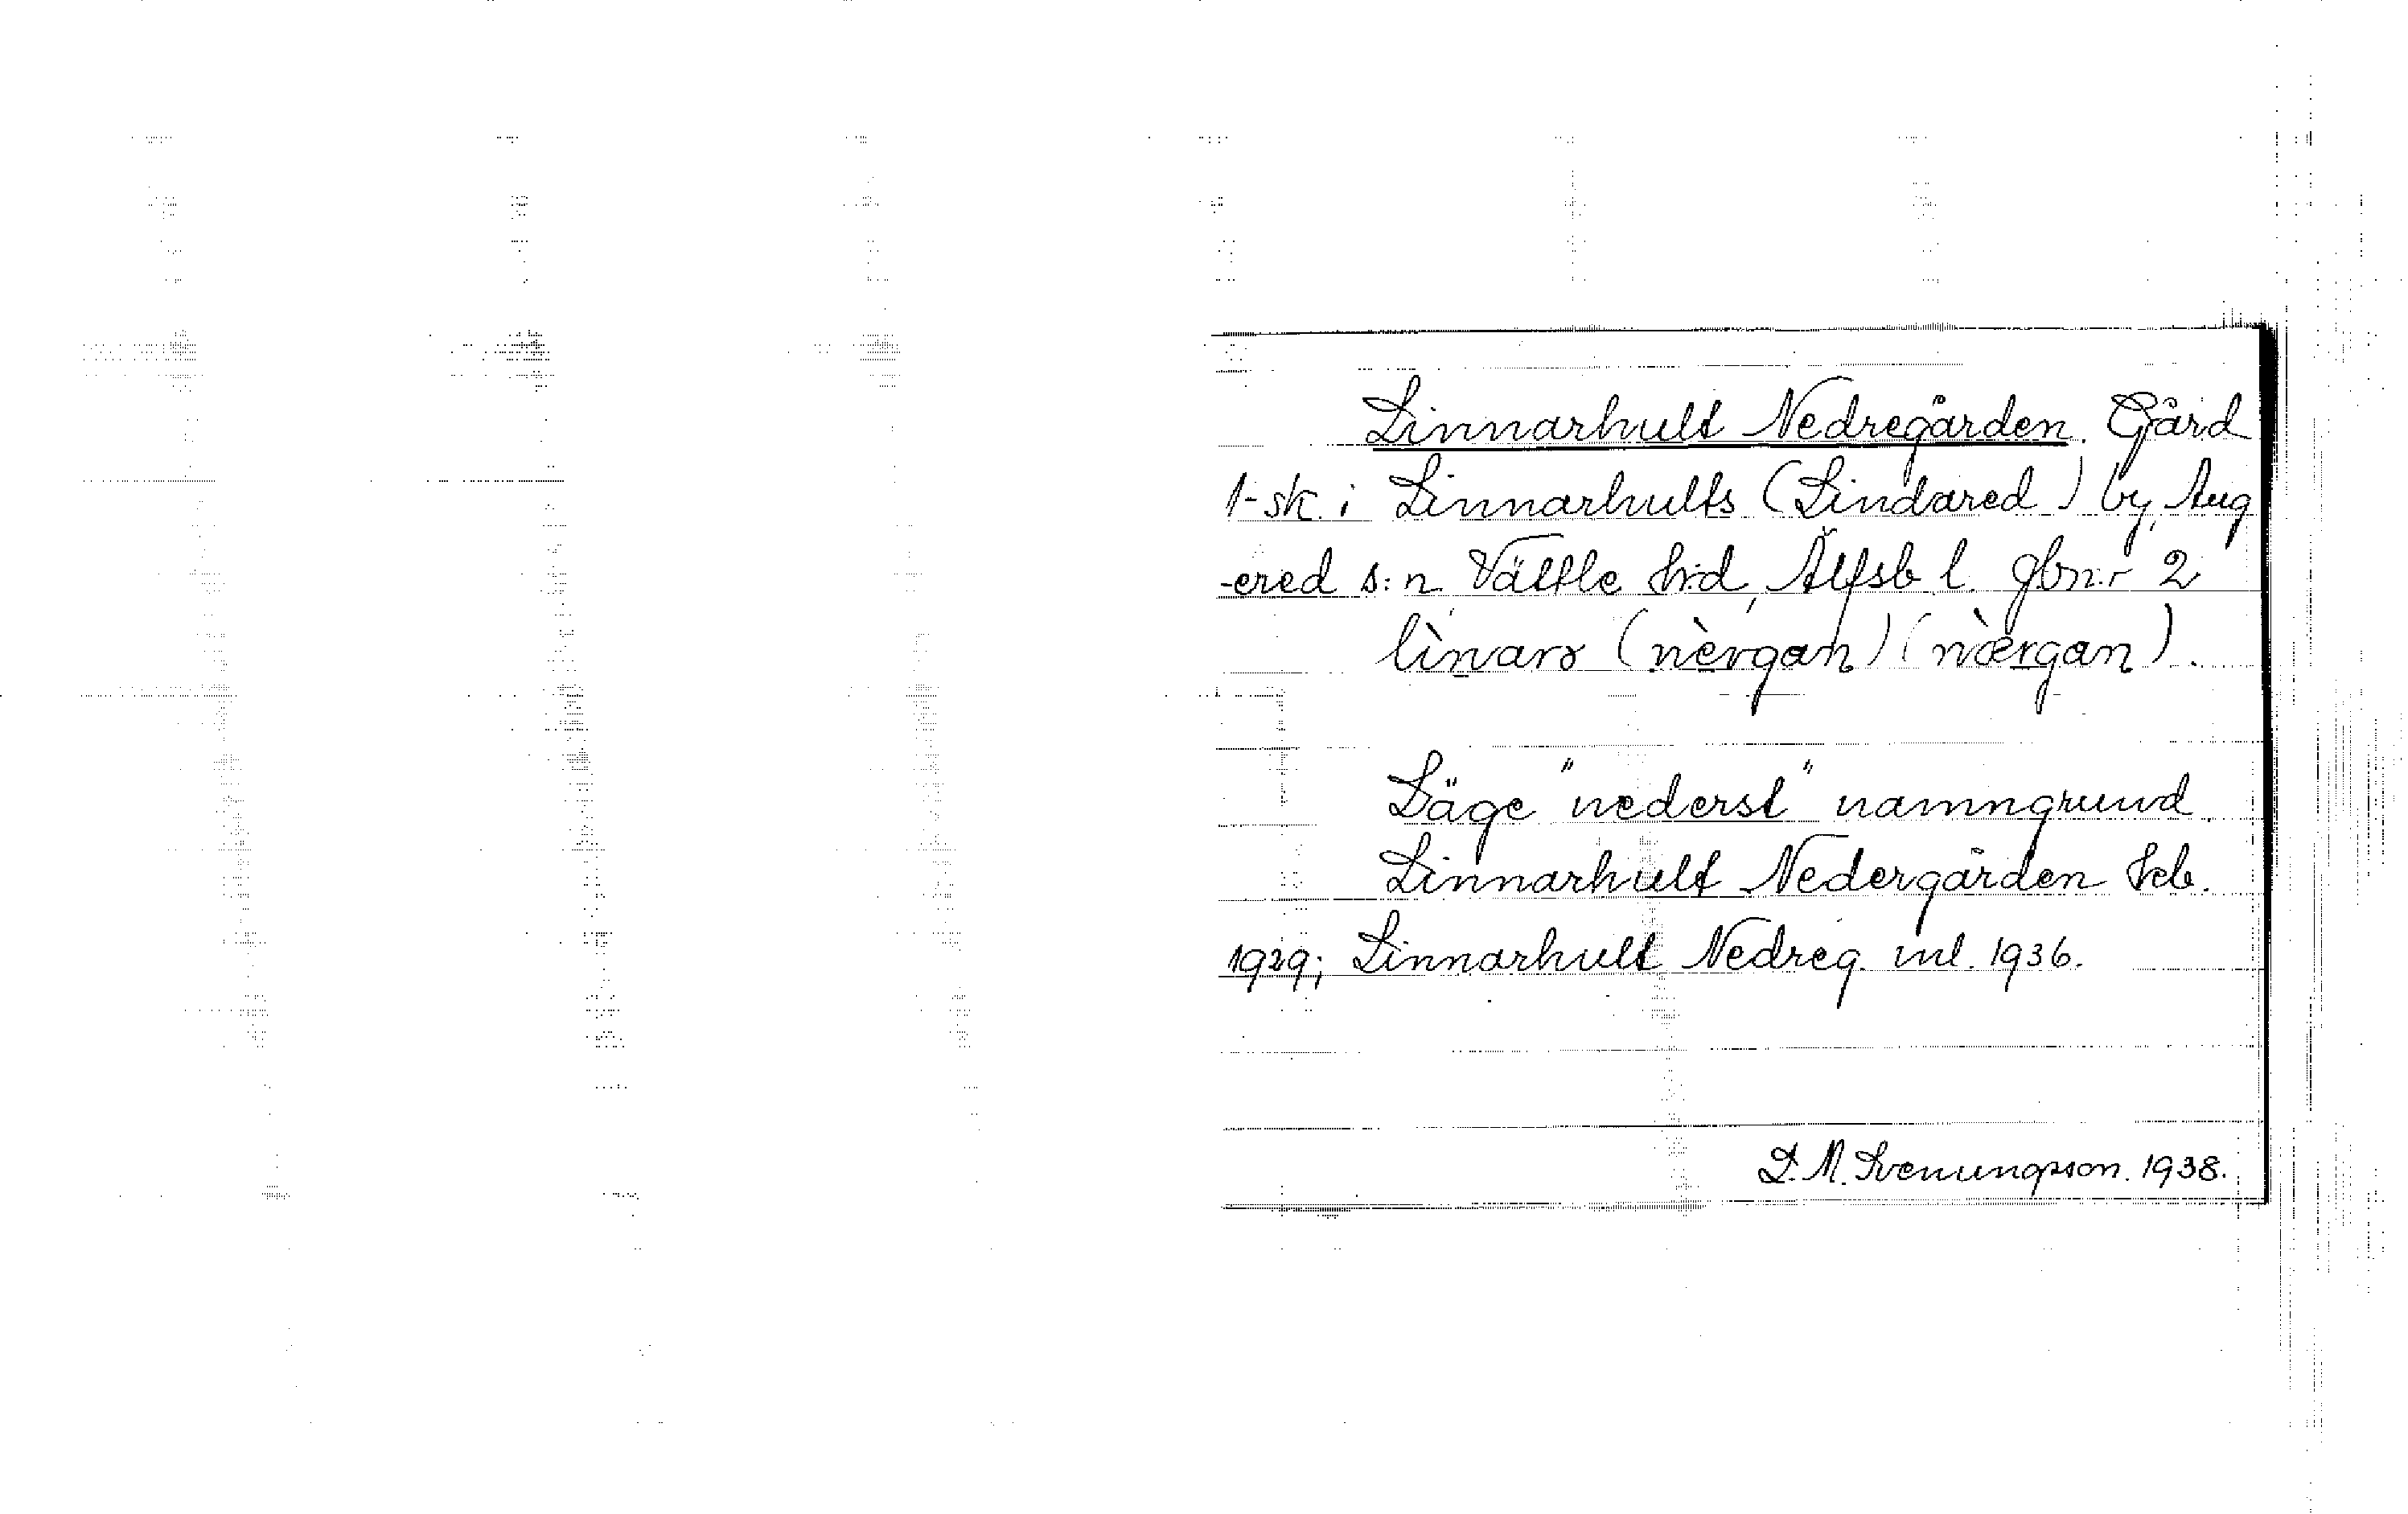 Linnarhult Nedregården. Gård
1-sk. i Linnarhults (Lindared) by, Aug
-ered s:n. Vättle hrd, Älfsb l. gbn:r 2
lìnarɤ (nèrgaṇ) (nærgan).
Läge "nederst" namngrund.
Linnarhult Nedergården Jeb.
1929; Linnarhult Nedreg. ml. 1936.
D. M. Svenungsson. 1938.